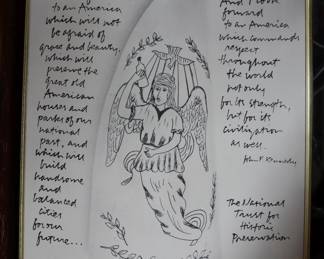 to an America
which will not
be afraid of
grace and beauty,
which will
preserve the
great old
American
houses and
parks of our
national
past, and
which will
build
handsome
and
balanced
cities
for our
future...
And I look
forward
to an America
which commands
respect
throughout
the world
not only
for its strength,
but for its
civilization
as well.
John F. Kennedy
The National
Trust for
Historic
Preservation